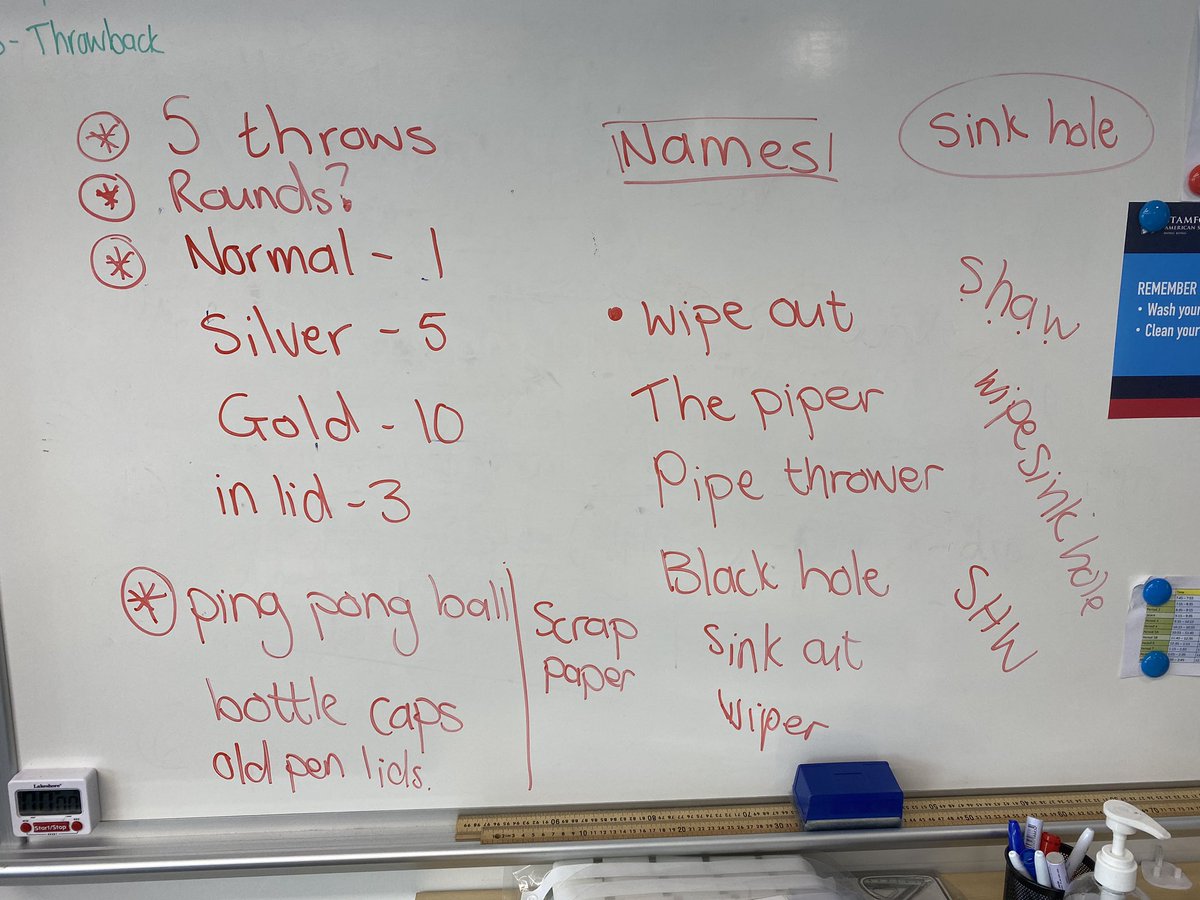 - Throwback
5 throws
Rounds?
Normal - 1
Silver - 5
Gold - 10
in lid - 3
ping pong ball
bottle caps
old pen lids.
Scrap
paper
Names
Sink hole
• Wipe out
The piper
Pipe thrower
Black hole
Sink out
Wiper
S.h.a.w
WipeSink hole
SHW
AMERICAN
REMEMBER
• Wash your
• Clean your
Lakeshore
Start/Stop